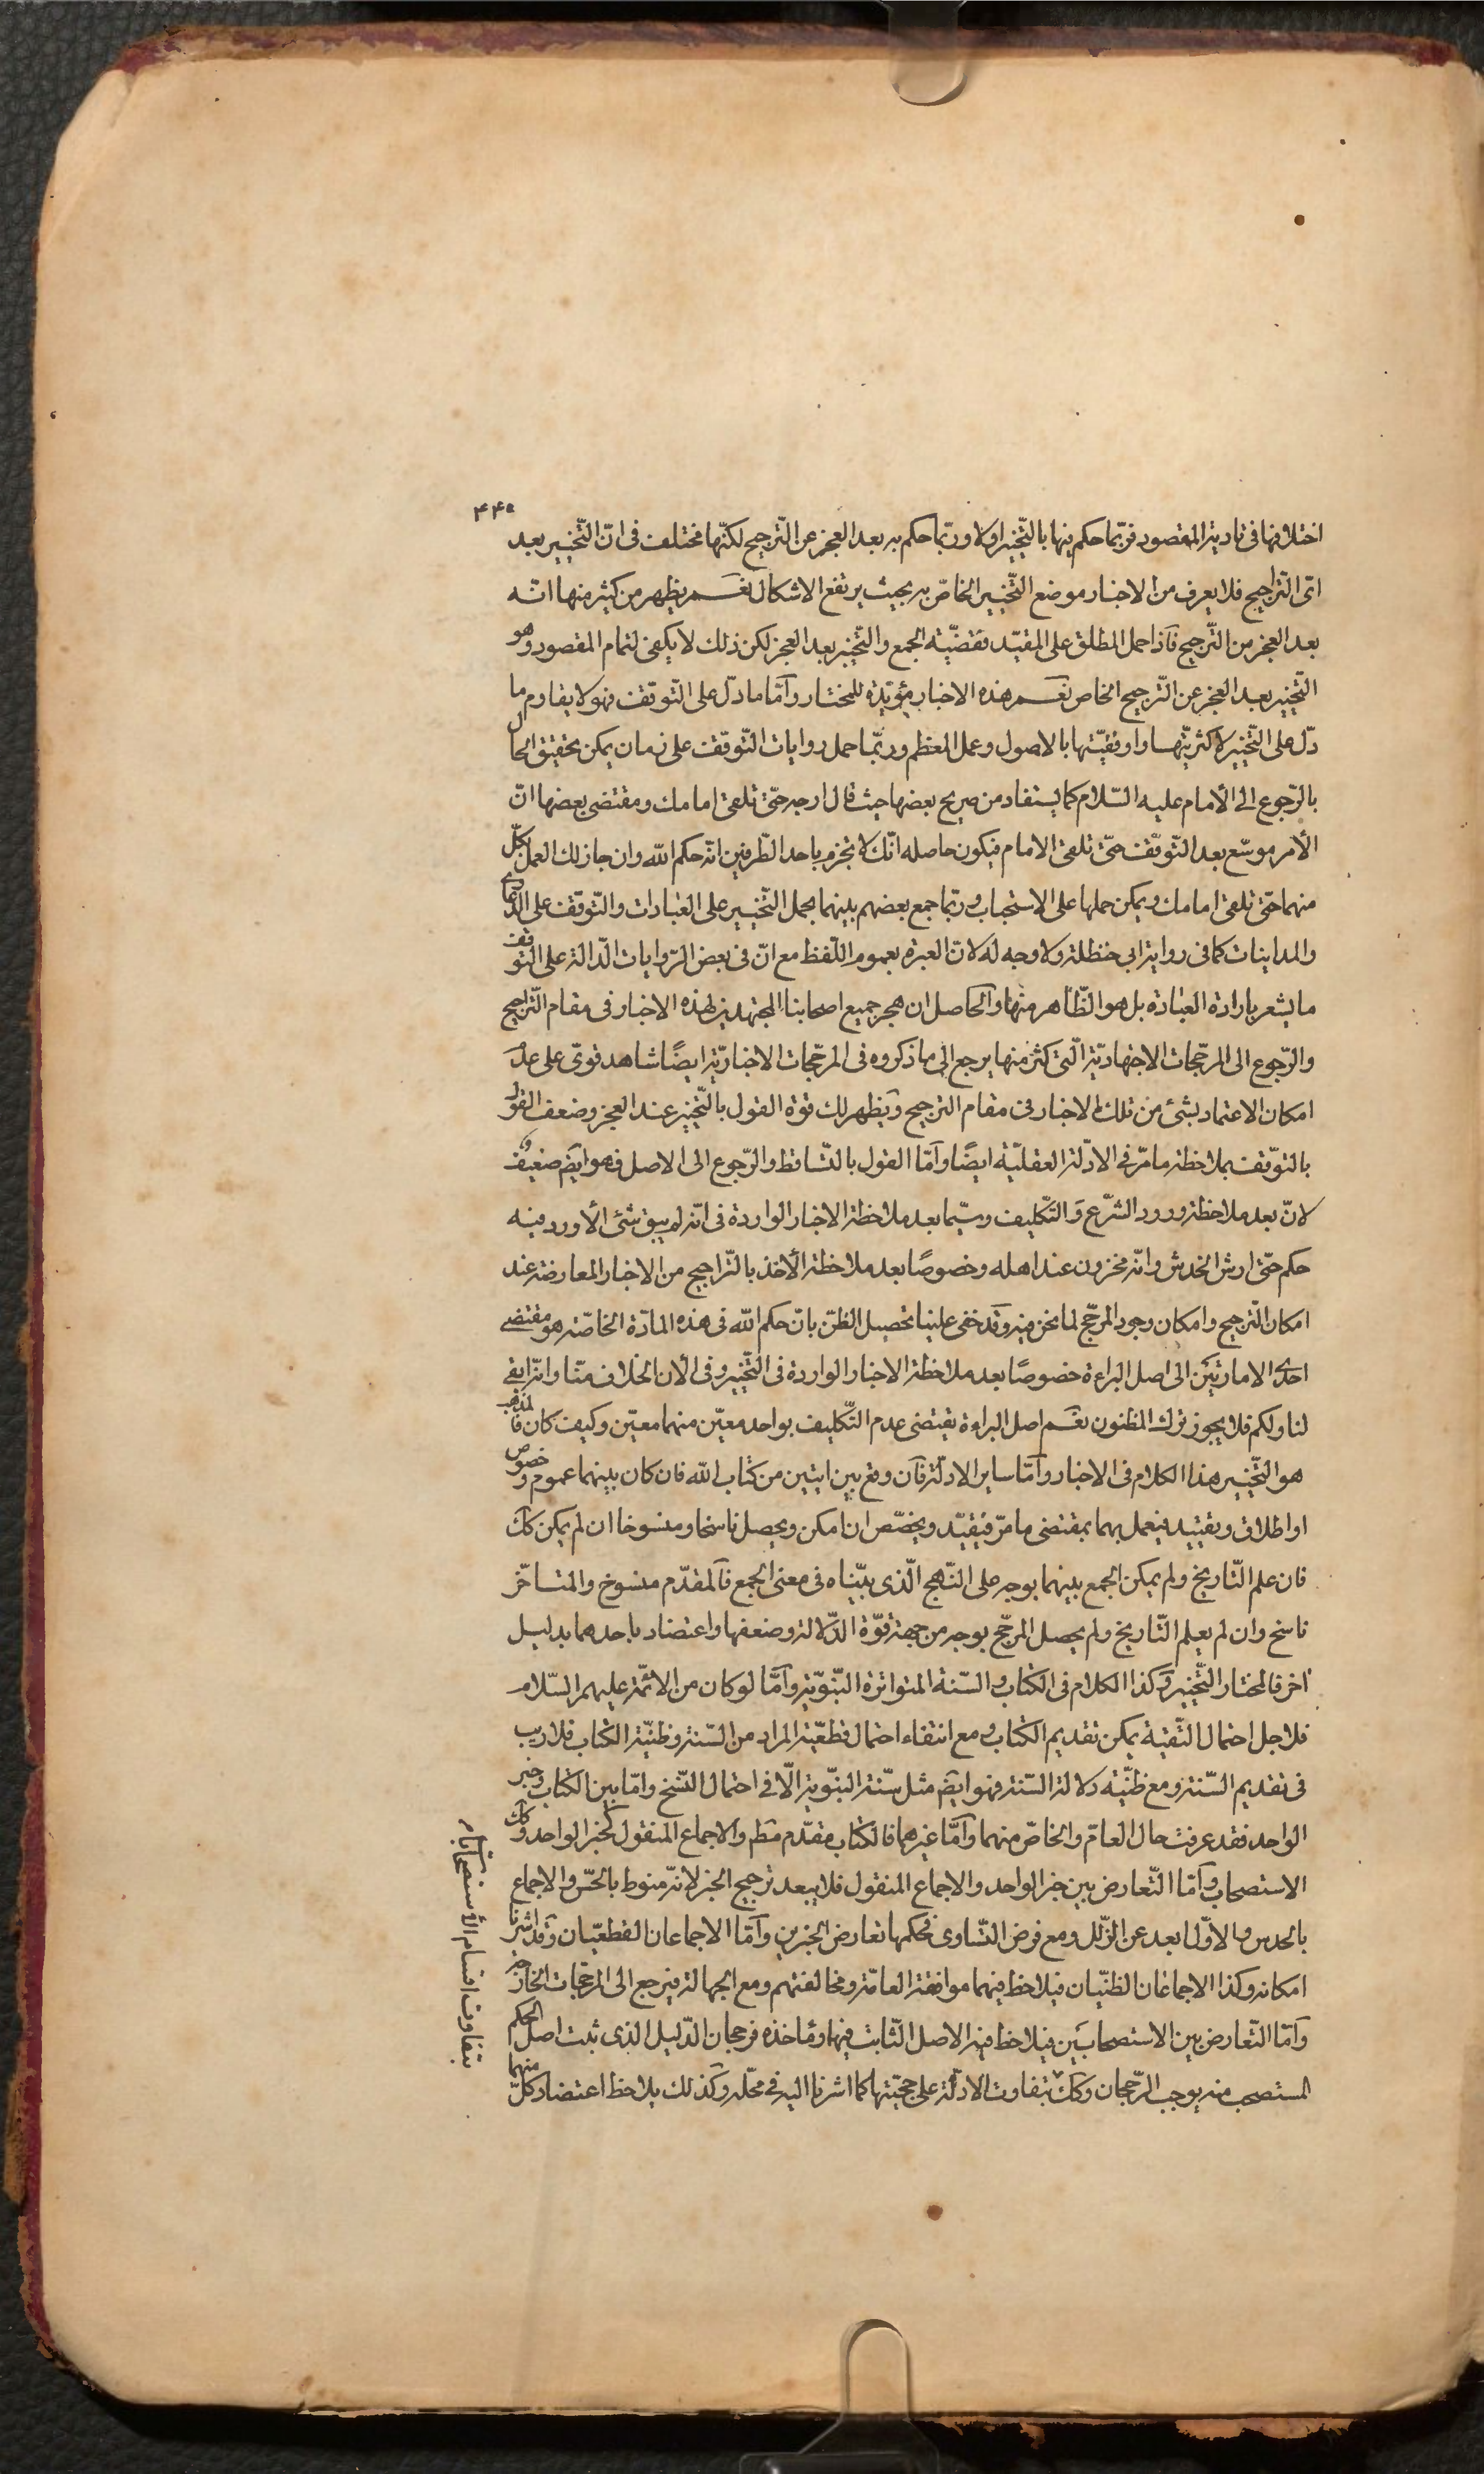 ۴۴۰
اختلافها فی تادیة المقصود فربّما حکم فیها بالتّخییر اولا وربّما حکم به بعد العجز عن التّرجیح لکنّها مختلف فی انّ التّخییر بعد
ایّ التّراجیح فلا یعرف من الاخبار موضع التّخییر الخاصّ به بحیث یرتفع الاشکال نعـم یظهر من کثیر منها انّه
بعد العجز من التّرجیح فآذا حمل المطلق علی المقیّد فقضیّة الجمع والتّخییر بعد العجز لکن ذلك لا یکفی لتمام المقصود وهو
التّخییر بعد العجز عن التّرجیح الخاص نعـم هذه الاخبار مؤیّدة للمختار وآمّا ما دلّ علی التّوقّف فهو لا یقاوم ما
دلّ علی التّخییر لاکثریّتها واوفقیّتها بالاصول وعمل المعظم وربّما حمل روایات التّوقّف علی زمان یمکن تحقیق الحال
بالرّجوع الی الأمام علیه السّلام کما یستفاد من صریح بعضها حیث قال ارجه حتّی تلقی امامك ومقتضی بعضها انّ
الأمر موسّع بعد التّوقّف حتّی تلقی الامام فیکون حاصله انّك لا تجزم باحد الطّرفین انّه حکم الله وان جاز لك العمل بکلّ
منهما حتّی تلقی امامك ویمکن حملها علی الاستحباب وربّما جمع بعضهم بینهما بحمل التّخییر علی العبادات والتّوقّف علی الدّعاوی
والمداینات کما فی روایة ابی حنظلة ولا وجه له لانّ العبرة بعموم اللّفظ مع انّ فی بعض الرّوایات الدّالة علی التّوقّف
ما یشعر بارادة العبادة بل هو الظّاهر منها وآلحاصل ان هجر جمیع اصحابنا المجتهدین لهذه الاخبار فی مقام التّراجیح
والرّجوع الی المرجّحات الاجتهادیّة الّتی کثر منها یرجع الی ما ذکروه فی المرجّحات الاخباریّة ایضًا شاهد قویّ علی عدم
امکان الاعتماد بشئ من تلك الاخبار فی مقام الترجیح ویظهر لك قوّة القول بالتّخییر عند العجز وضعف القول
بالتوّقف بملاحظة ما مرّ فی الادّلة العقلیّة ایضًا وآمّا القول بالتّساقط والرّجوع الی الاصل فهو ایضً ضعیف
لانّ بعد ملاحظة ورود الشّرع والتّکلیف وسیّما بعد ملاحظة الاخبار الواردة فی انّه لم یبق شئ الّا ورد فیه
حکم حتّی ارش الخدش وانّه مخزون عند اهله وخصوصًا بعد ملاحظة الأخذ بالتّراجیح من الاخبار المعارضة عند
امکان التّرجیح وامکان وجود المرجّح لما نحن فیه وقد خفی علینا تحصیل الظنّ بانّ حکم الله فی هذه المادّة الخاصّة هو مقتضی
احدی الامارتین الی اصل البراءة خصوصًا بعد ملاحظة الاخبار الواردة فی التّخییر وفی الأن الخلاف منّا
لنا ولکم فلا یجوز ترك المظنون نعـم اصل البراءة یقتضی عدم التّکلیف بواحد معیّن منهما معیّن وکیف کان فالمذهب
هو التّخییر هذا الکلام فی الاخبار وآمّا سایر الادلّة فآن وقع بین ایتین من کتاب الله فان کان بینهما عموم وخصوص
او اطلاق وتقیید فیعمل بهما بمقتضی ما مرّ فیقیّد ویخصّص ان امکن ویحصل ناسخا ومنسوخا ان لم یمکن کك
فان علم التّاریخ ولم یمکن الجمع بینهما بوجه علی النّهج الّذی بیّناه فی معنی الجمع فآلمقدّم منسوخ والمتأخّر
ناسخ وان لم یعلم التّاریخ ولم یحصل المرجّح بوجه من جهة قوّة الدّلالة وضعفها واعتضاد باحدهما بدلیل
آخر فالمختار التّخییر وکذا الکلام فی الکتاب والسّنة المتواترة النّبوّیة وآمّا لو کان من الائمّة علیهم السّلام
فلاجل احتمال التّقیة یمکن تقدیم الکتاب ومع انتفاء احتمال قطعیّة المراد من السّنة وظنیّة الکتاب فلا ریب
فی تقدیم السّنة ومع ظنّیّة دلالة السّنة فهو ایضً مثل سنّة النبوّیة الّا فی احتمال النّسخ وامّا بین الکتاب وخبر
الواحد فقد عرفت حال العامّ والخاصّ منهما وآمّا غیرهما فالکتاب مقدّم مطم والاجماع المنقول کخبر الواحد وکك
الاستصحاب وآمّا التّعارض بین خبر الواحد والاجماع المنقول فلا یبعد ترجیح الخبر لانّه منوط بالحسّ والاجماع
بالحدس والاوّل ابعد عن الزّلل ومع فرض التّساوی فحکمها تعارض الخبرین وآمّا الاجماعان القطعیّان وقد اشرنا
امکانه وکذا الاجماعان الظنّیّان فیلاحظ فیهما موافقة العامّة ومخالفتهم ومع الجهالة فیرجع الی المرجّحات الخارجة
وآمّا التّعارض بین الاستصحابین فیلاحظ فیه الاصل الثّابت فیها ومأخذه فرجحان الدّلیل الذی ثبت اصل الحکم
المستصحب منه یوجب الرّجحان وکك بتفاوت الادلّة علی حجّیّتها کما اشرنا الیه فی محلّه وکذلك یلاحظ اعتضاد کلّ منهما
بتفاوت اقسام الأستصحاب